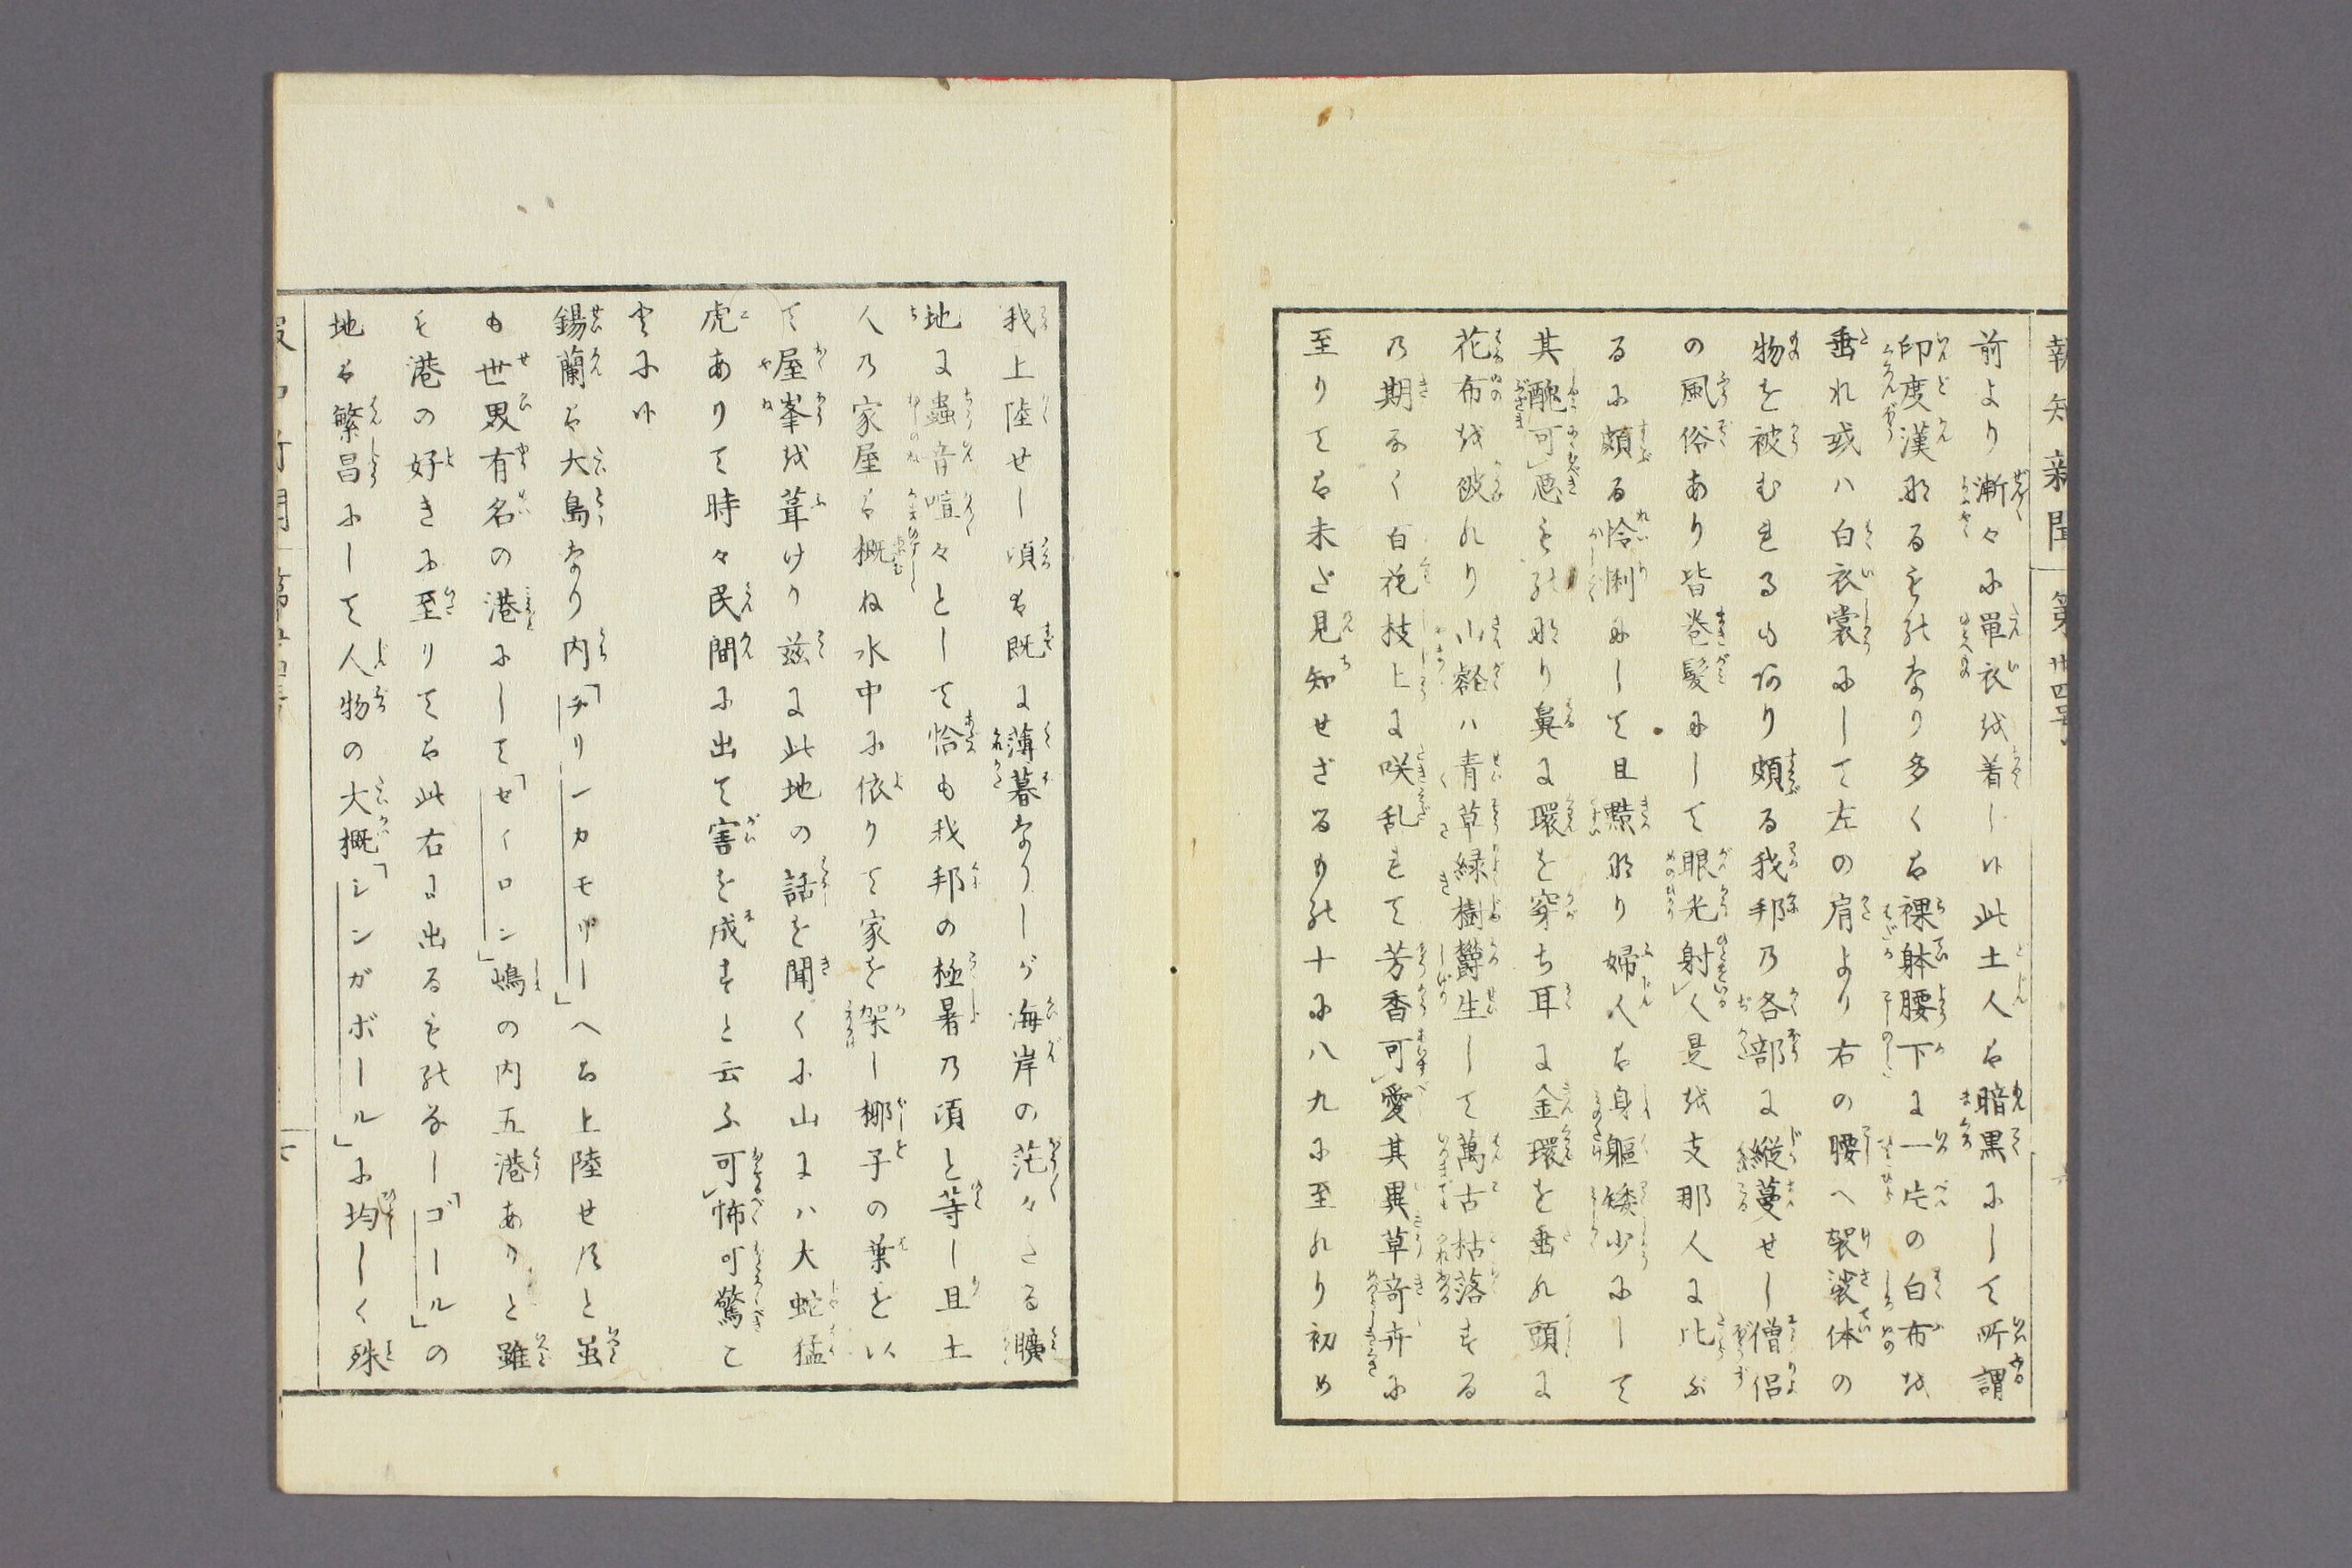 報知新聞 第廿四号
前より漸々に單衣を着し候此土人は暗黒にして所謂
印度漢なるものなり多くは裸躰腰下に一片の白布を
垂れ或ハ白衣裳にして左の肩より右の腰へ袈裟体の
物を被むるもあり頗る我邦の各部に縱蔓せし僧侶
の風俗あり皆巻髪にして眼光射人是を支那人に比ぶ
るに頗る怜悧にして且黠なり婦人は身軀矮少にして
其醜可惡ものなり鼻に環を穿ち耳に金環を垂れ頭に
花布を破れり山谿ハ青草緑樹欝生して萬古枯落する
の期なく百花枝上に咲乱れて芳香可愛其異草奇卉に
至りては未だ見知せざるもの十に八九に至れり初め
我上陸せし頃は既に薄暮なりしが海岸の茫々たる曠
地に蟲音喧々として恰も我邦の極暑の頃と等し且土
人の家屋は概ね水中に依りて家を架し椰子の葉を以
て屋峯を葺けり茲に此地の話を聞くに山にハ大蛇猛
虎ありて時々民間に出て害を成すと云ふ可怖可驚こ
とに候
錫蘭は大島なり内「チリンカモリー」へは上陸せずと虽
も世界有名の港にして「セイロン」嶋の内五港ありと雖
も港の好きに至りては此右に出るものなし「ゴール」の
地は繁昌にして人物の大概「シンガポール」に均しく殊